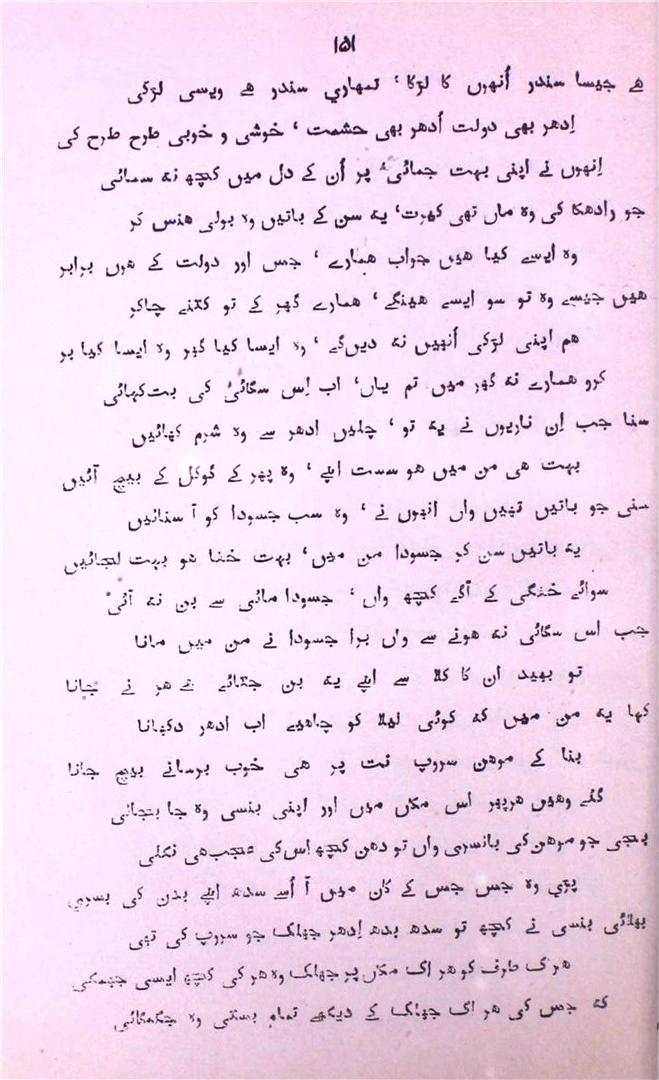 ۱۵۱
ھے جیسا سندر اُنھوں کا لڑکا ' تمھاری سندر ھے ویسی لڑکی
اِدھر بھی دولت اُدھر بھی حشمت ' خوشی و خوبی طرح طرح کی
اِنھوں نے اپنی بہت جمائی' پر اُن کے دل میں کچھ نہ سمائی
جو رادھکا کی وہ ماں تھی کھرت' یہ سن کے باتیں وہ بولی ھنس کر
وہ ایسے کیا ھیں جواب ھمارے ' جس اور دولت کے ھوں برابر
ھیں جیسے وہ تو سو ایسے ھینگے' ھمارے گھر کے تو کتنے چاکر
ھم اپنی لڑکی اُنھیں نہ دیں گے ' وہ ایسا کیا گھر وہ ایسا کیا بر
کرو ھمارے نہ گھر میں تم یاں' اب اِس سگائی کی بت کہائی
سنا جب اِن ناریوں نے یہ تو ' چلیں ادھر سے وہ شرم کھائیں
بہت ھی من میں ھو سست اپنے ' وہ پھر کے گوکل کے بیچ آئیں
سنی جو باتیں تھیں واں انھوں نے ' وہ سب جسودا کو آ سنائیں
یہ باتیں سن کر جسودا من میں' بہت خفا ھو بہت لجائیں
سوائے خفگی کے آگے کچھ واں ' جسودا مائی سے بن نہ آئی
جب اس سگائی نہ ھونے سے واں برا جسودا نے من میں مانا
تو بھید ان کا کلا سے اپنے یہ بن جتائے ھی ھر نے جانا
کہا یہ من میں کہ کوئی لیلا کو چاھیے اب ادھر دکھانا
بنا کے موھن سروپ نت پر ھی خوب برسانے بیچ جانا
گئے وھیں ھر پھر اس مکاں میں اور اپنی بنسی وہ جا بجائی
بجی جو موھن کی بانسری واں تو دھن کچھ اس کی عجب ھی نکلی
پڑی وہ جس جس کے کان میں آ اُسے سدھ اپنے بدن کی بسری
بھلائی بنسی نے کچھ تو سدھ بدھ اِدھر جھلک جو سروپ کی تھی
ھر ک طرف کو ھر اک مکاں پر جھلک وہ ھر کی کچھ ایسی جھمکی
کہ جس کی ھر اک جھلک کے دیکھے تمام بستی وہ جگمگائی